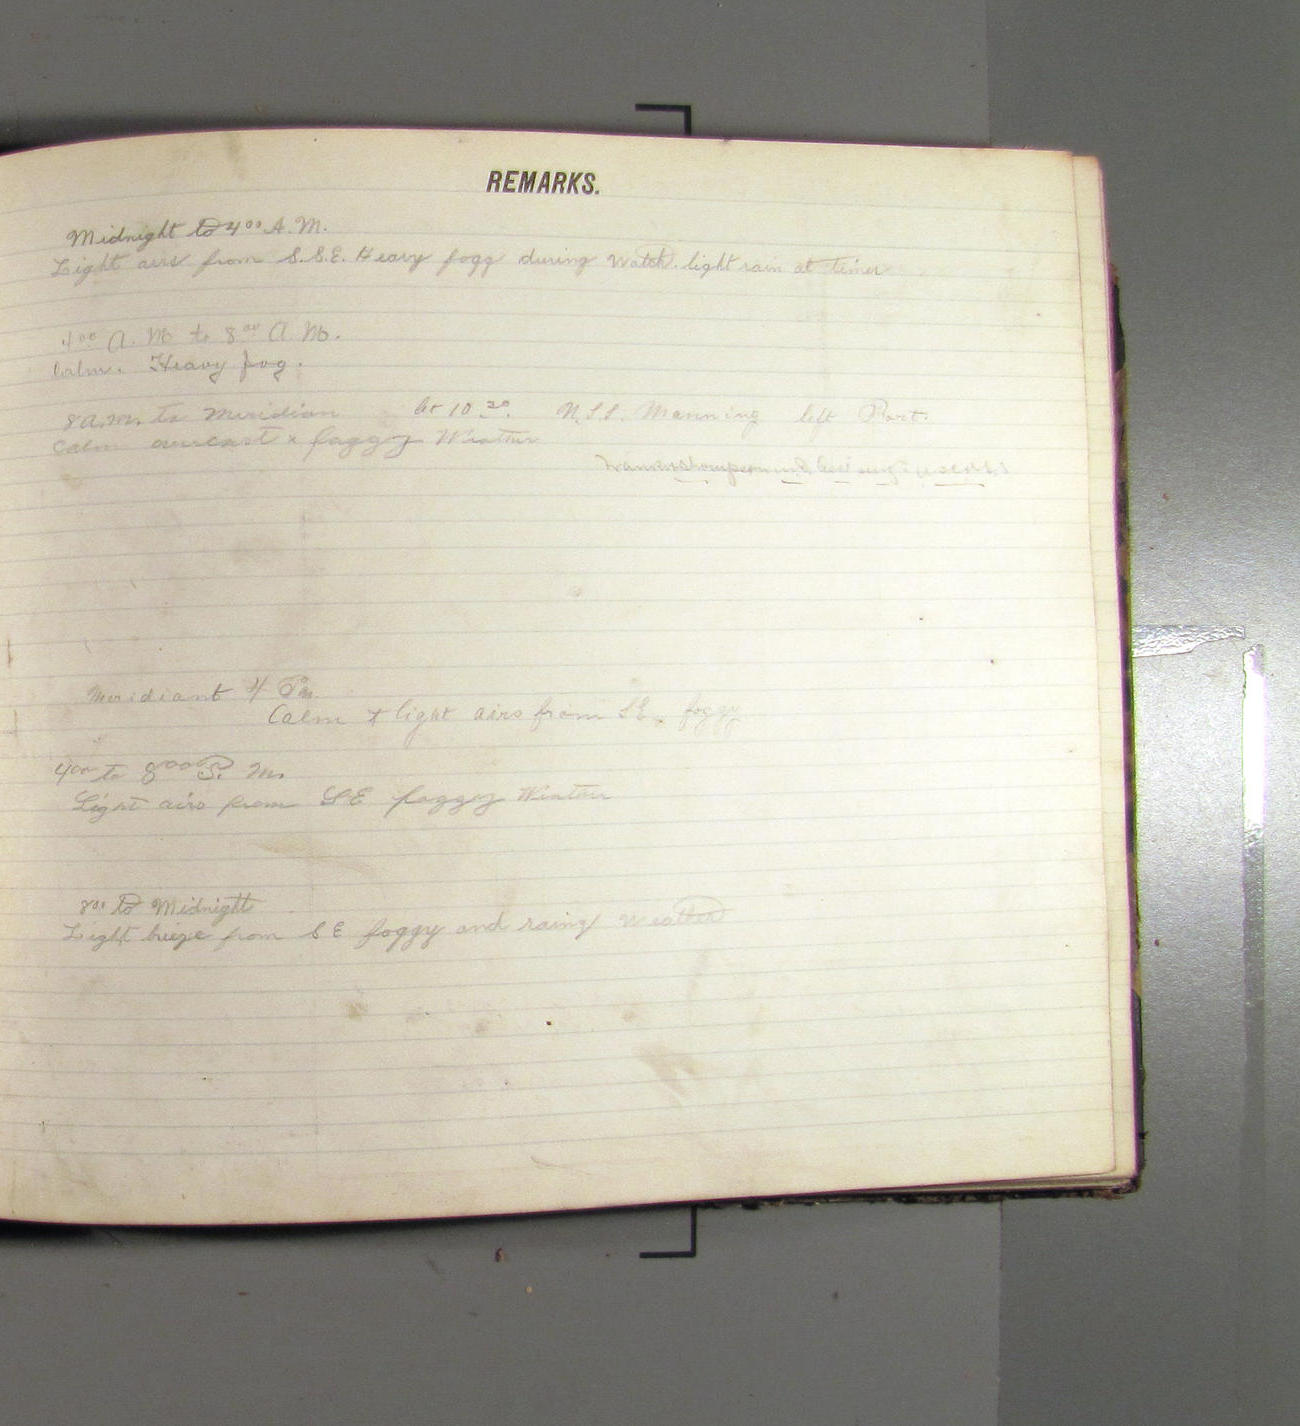 REMARKS.
Midnight to 4 00 A.M.
Light airs from S.S.E. Heavy fogg during Watch. light rain at times
4 00 A. M to 8 00 A. M.
Calm. Heavy fog.
8 a.m. to Meridian At 10 20. U.S.S. Manning left Port.
Calm overcast & foggy Weather
Meridian to 4 P.m.
Calm & light airs from SE. foggy
4 00 to 8 00 P. M.
Light airs from SE foggy Weather
8 00 to Midnight
Light breeze from SE foggy and rainy Weather